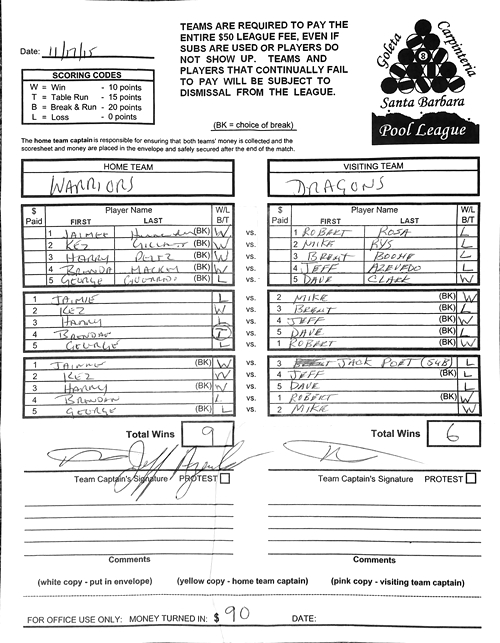 Date: 11/17/15
TEAMS ARE REQUIRED TO PAY THE
ENTIRE $50 LEAGUE FEE, EVEN IF
SUBS ARE USED OR PLAYERS DO
NOT SHOW UP. TEAMS AND
PLAYERS THAT CONTINUALLY FAIL
TO PAY WILL BE SUBJECT TO
DISMISSAL FROM THE LEAGUE.
(BK = choice of break)
SCORING CODES
W = Win - 10 points
T = Table Run - 15 points
B = Break & Run - 20 points
L = Loss - 0 points
Goleta
Carpinteria
8
Santa Barbara
Pool League
The home team captain is responsible for ensuring that both teams' money is collected and the
scoresheet and money are placed in the envelope and safely secured after the end of the match.
HOME TEAM VISITING TEAM
WARRIORS DRAGONS
$ Paid Player Name FIRST LAST W/L B/T $ Paid Player Name FIRST LAST W/L B/T
1 JAIMEE (BK) W vs. 1 ROBERT ROSA L
2 KEZ (BK) W vs. 2 MIKE RYS L
3 HARRY (BK) W vs. 3 BRENT BOONE L
4 BRENDA (BK) W vs. 4 JEFF AZEVEDO L
5 GEORGE (BK) L vs. 5 DAVE CLARK W
1 JAIMIE L vs. 2 MIKE (BK) W
2 KEZ W vs. 3 BRENT (BK) L
3 HARRY L vs. 4 JEFF (BK) W
4 BRENDAN T vs. 5 DAVE (BK) L
5 GEORGE L vs. 1 ROBERT (BK) W
1 JAIME (BK) W vs. 3 JACK POET (SUB) L
2 KEZ W vs. 4 JEFF (BK) L
3 HARRY (BK) W vs. 5 DAVE L
4 BRENDAN L vs. 1 ROBERT (BK) W
5 GEORGE (BK) L vs. 2 MIKE W
Total Wins 9 Total Wins 6
Team Captain's Signature PROTEST Team Captain's Signature PROTEST
Comments Comments
(white copy - put in envelope) (yellow copy - home team captain) (pink copy - visiting team captain)
FOR OFFICE USE ONLY: MONEY TURNED IN: $ 90 DATE: